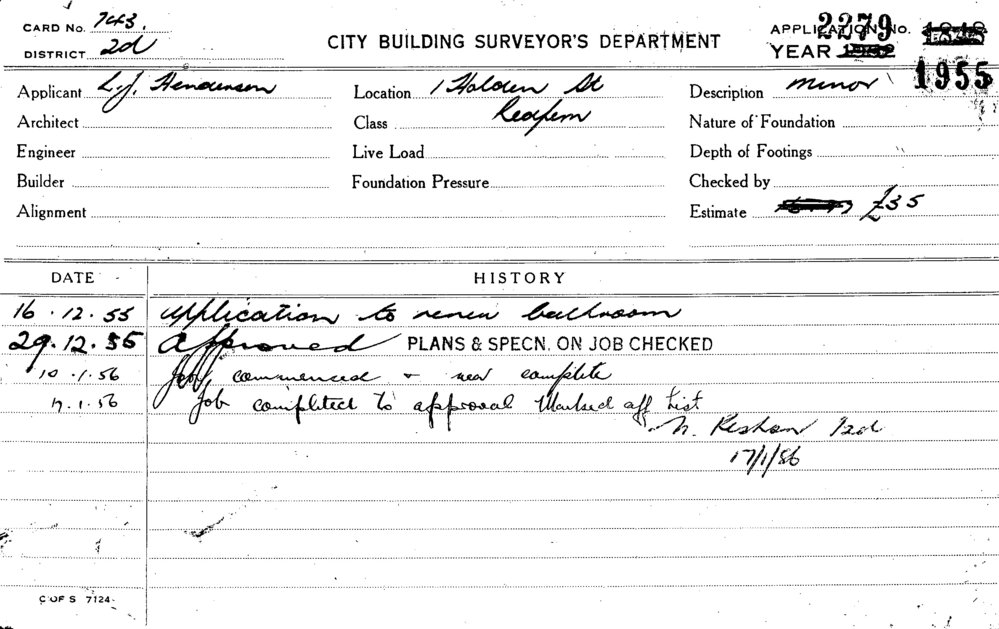 CARD No. 743.
DISTRICT 2d
CITY BUILDING SURVEYOR'S DEPARTMENT
APPLICATION No. 2279
YEAR 1955
Applicant L.J. Henderson
Architect
Engineer
Builder
Alignment
Location 1 Holden St
Class Redfern
Live Load
Foundation Pressure
Description minor
Nature of Foundation
Depth of Footings
Checked by
Estimate £35
DATE HISTORY
16.12.55 Application to renew bathroom
29.12.55 Approved PLANS & SPECN. ON JOB CHECKED
10.1.56 Job commenced & near complete
17.1.56 Job completed to approval Marked off List
N.
17/1/56
C OF S 7124